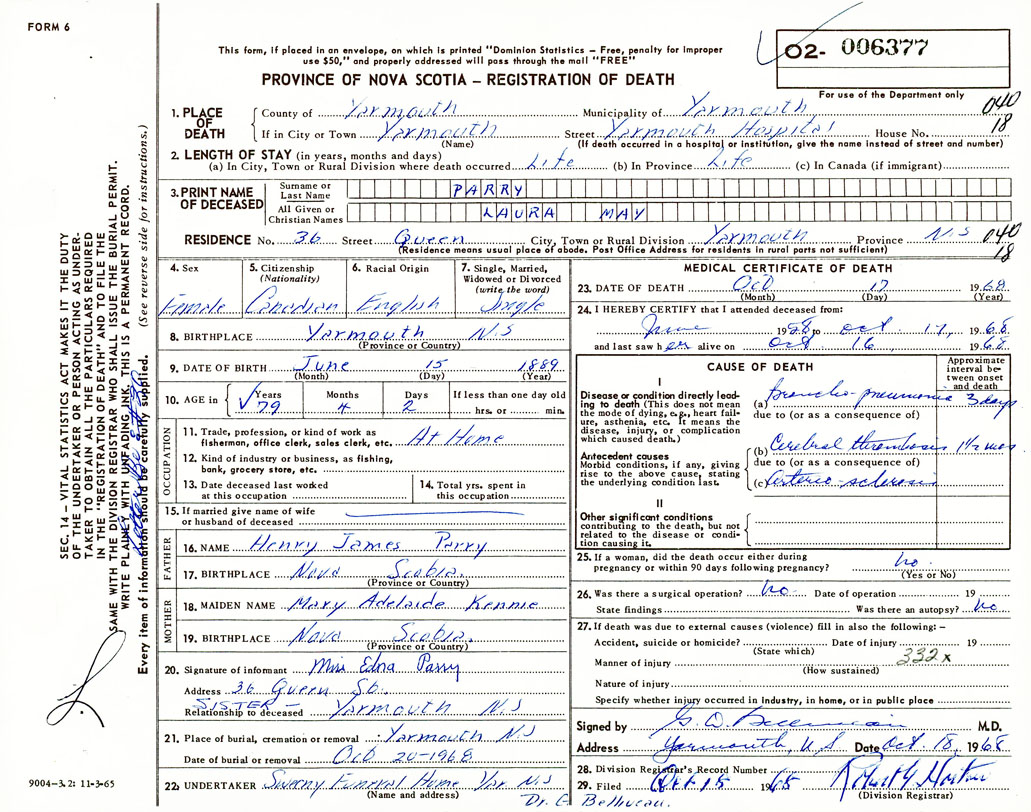 FORM 6
This form, if placed in an envelope, on which is printed "Dominion Statistics – Free, penalty for improper
use $50," and properly addressed will pass through the mail "FREE"
O2- 006377
PROVINCE OF NOVA SCOTIA – REGISTRATION OF DEATH
For use of the Department only
040
18
1. PLACE OF DEATH
County of Yarmouth Municipality of Yarmouth
If in City or Town Yarmouth Street Yarmouth Hospital House No.
(Name) (If death occurred in a hospital or institution, give the name instead of street and number)
2. LENGTH OF STAY (in years, months and days)
(a) In City, Town or Rural Division where death occurred Life (b) In Province Life (c) In Canada (if immigrant)
3. PRINT NAME OF DECEASED
Surname or Last Name PARRY
All Given or Christian Names LAURA MAY
RESIDENCE No. 36 Street Queen City, Town or Rural Division Yarmouth Province N.S
(Residence means usual place of abode. Post Office Address for residents in rural parts not sufficient)
040
18
4. Sex Female
5. Citizenship (Nationality) Canadian
6. Racial Origin English
7. Single, Married, Widowed or Divorced (write the word) Single
8. BIRTHPLACE Yarmouth N.S
(Province or Country)
9. DATE OF BIRTH June 15 1889
(Month) (Day) (Year)
10. AGE in Years 79 Months 4 Days 2 If less than one day old hrs. or min.
OCCUPATION
11. Trade, profession, or kind of work as fisherman, office clerk, sales clerk, etc. At Home
12. Kind of industry or business, as fishing, bank, grocery store, etc.
13. Date deceased last worked at this occupation
14. Total yrs. spent in this occupation
15. If married give name of wife or husband of deceased
FATHER
16. NAME Henry James Parry
17. BIRTHPLACE Nova Scotia.
(Province or Country)
MOTHER
18. MAIDEN NAME Mary Adelaide Kennie
19. BIRTHPLACE Nova Scotia.
(Province or Country)
20. Signature of informant Miss Edna Parry
Address 36 Queen St.
SISTER –
Relationship to deceased Yarmouth N.S
21. Place of burial, cremation or removal Yarmouth N.S
Date of burial or removal Oct 20-1968
22. UNDERTAKER Sweeny Funeral Home Yar N.S
(Name and address)
Dr. G Belliveau.
MEDICAL CERTIFICATE OF DEATH
23. DATE OF DEATH Oct 17 1968
(Month) (Day) (Year)
24. I HEREBY CERTIFY that I attended deceased from:
June 1958 to Oct. 17, 1968
and last saw her alive on Oct 16 1968
CAUSE OF DEATH
Approximate interval between onset and death
I
Disease or condition directly leading to death (This does not mean the mode of dying, e.g., heart failure, asthenia, etc. It means the disease, injury, or complication which caused death.)
(a) Broncho-pneumonia 3 days
due to (or as a consequence of)
Antecedent causes
Morbid conditions, if any, giving rise to the above cause, stating the underlying condition last.
(b) Cerebral thrombosis 1½ mos
due to (or as a consequence of)
(c) Arterio-sclerosis
II
Other significant conditions contributing to the death, but not related to the disease or condition causing it.
25. If a woman, did the death occur either during pregnancy or within 90 days following pregnancy? No
(Yes or No)
26. Was there a surgical operation? No Date of operation 19
State findings Was there an autopsy? No
27. If death was due to external causes (violence) fill in also the following: –
Accident, suicide or homicide? Date of injury 19
(State which)
Manner of injury 332x
(How sustained)
Nature of injury
Specify whether injury occurred in industry, in home, or in public place
Signed by M.D.
Address Yarmouth, N.S Date Oct. 18, 1968
28. Division Registrar's Record Number
29. Filed Oct 15 1968
(Division Registrar)
SEC. 14 – VITAL STATISTICS ACT MAKES IT THE DUTY
OF THE UNDERTAKER OR PERSON ACTING AS UNDER-
TAKER TO OBTAIN ALL THE PARTICULARS REQUIRED
IN THE "REGISTRATION OF DEATH" AND TO FILE THE
SAME WITH THE DIVISION REGISTRAR WHO SHALL ISSUE THE BURIAL PERMIT.
WRITE PLAINLY WITH UNFADING INK. THIS IS A PERMANENT RECORD.
Every item of information should be carefully supplied. (See reverse side for instructions.)
9004-3.2: 11-3-65